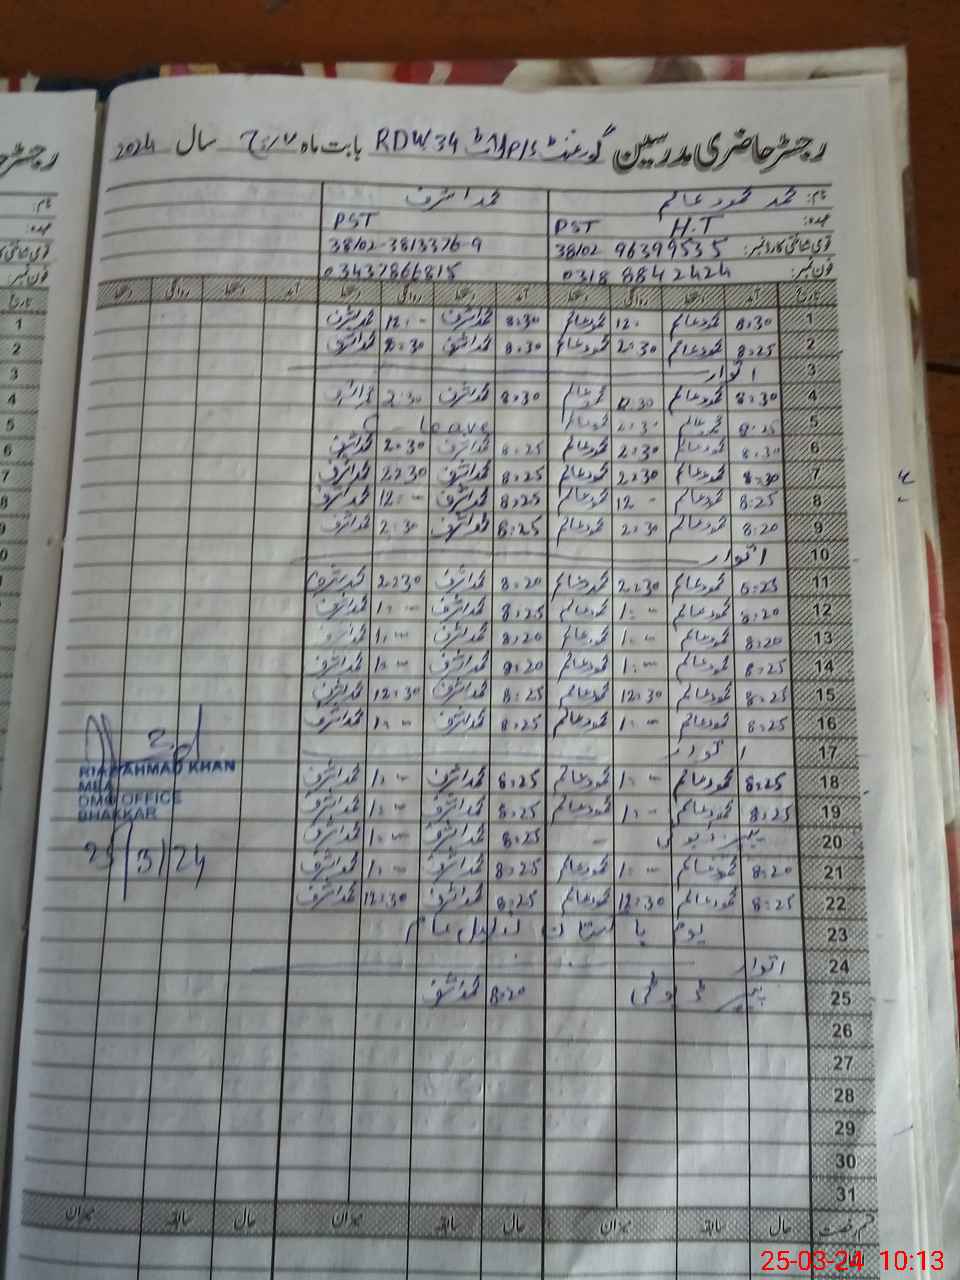 رجسٹر حاضری مدرسین گورنمنٹ P/S RDW 34 بابت ماہ مارچ سال 2024
نام: محمد محمود عالم محمد اشرف
عہدہ: PST H.T PST
قومی شناختی کارڈ نمبر: 38102 96399535 38102-3813376-9
فون نمبر: 0318 8842424 03437866815
تاریخ آمد دستخط روانگی دستخط آمد دستخط روانگی دستخط آمد دستخط روانگی دستخط
1 8:30 محمود عالم 12:- محمود عالم 8:30 محمد اشرف 12:- محمد اشرف
2 8:25 محمود عالم 2:30 محمود عالم 8:30 محمد اشرف 2:30 محمد اشرف
3 اتوار
4 8:30 محمود عالم 12:30 محمود عالم 8:30 محمد اشرف 2:30 محمد اشرف
5 8:25 محمود عالم 2:30 محمود عالم C - leave
6 8:30 محمود عالم 2:30 محمود عالم 8:25 محمد اشرف 2:30 محمد اشرف
7 8:30 محمود عالم 2:30 محمود عالم 8:25 محمد اشرف 2:30 محمد اشرف
8 8:25 محمود عالم 12 - محمود عالم 8:25 محمد اشرف 12:- محمد اشرف
9 8:20 محمود عالم 2:30 محمود عالم 8:25 محمد اشرف 2:30 محمد اشرف
10 اتوار
11 8:25 محمود عالم 2:30 محمود عالم 8:20 محمد اشرف 2:30 محمد اشرف
12 8:20 محمود عالم 1:- محمود عالم 8:25 محمد اشرف 1:- محمد اشرف
13 8:20 محمود عالم 1:- محمود عالم 8:20 محمد اشرف 1:- محمد اشرف
14 8:25 محمود عالم 1:- محمود عالم 8:20 محمد اشرف 1:- محمد اشرف
15 8:25 محمود عالم 12:30 محمود عالم 8:25 محمد اشرف 12:30 محمد اشرف
16 8:25 محمود عالم 1:- محمود عالم 8:25 محمد اشرف 1:- محمد اشرف
17 اتوار
18 8:25 محمود عالم 1:- محمود عالم 8:25 محمد اشرف 1:- محمد اشرف
19 8:25 محمود عالم 1:- محمود عالم 8:25 محمد اشرف 1:- محمد اشرف
20 پیپر ڈیوٹی - 8:25 محمد اشرف 1:- محمد اشرف
21 8:20 محمود عالم 1:- محمود عالم 8:25 محمد اشرف 1:- محمد اشرف
22 8:25 محمود عالم 12:30 محمود عالم 8:25 محمد اشرف 12:30 محمد اشرف
23 یوم پاکستان تعطیل عام
24 اتوار
25 پیپر ڈیوٹی 8:20 محمد اشرف
26
27
28
29
30
31
RIAZ AHMAD KHAN
MEA
DMO OFFICE
BHAKKAR
25/3/24
قسم رخصت حال سابقہ میزان حال سابقہ میزان حال سابقہ میزان
25-03-24 10:13